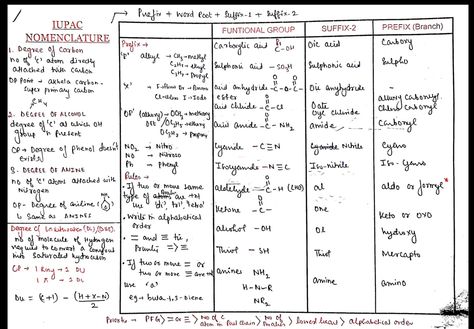 Prefix + Word Root + Suffix-1 + Suffix-2
IUPAC
NOMENCLATURE
1. Degree of Carbon
no of 'c' atom directly
attached with carbon
super primary carbon
CH4
2. DEGREE OF ALCOHOL
degree of 'c' at which OH
group is present
Degree of phenol doesn't
exists
3. DEGREE OF AMINE
no of 'c' atoms attached with
Nitrogen
OP - Degree of aniline
Same as AMINES
Degree of Unsaturation (DU), (DBE)
no of molecule of Hydrogen
required to convert a compound
into saturated hydrocarbon
1 Ring = 1 DU
1 π = 1 DU
DU = (C+1) - (H+X-N)/2
Prefix →
'R' alkyl → CH3 - methyl
C2H5 - ethyl
C3H7 - Propyl
'X' F - Fluoro Br - Bromo
Cl - chloro I - Iodo
OR' (alkoxy) → OCH3 - methoxy
OC2H5 - ethoxy
OC3H7 - Propoxy
NO2 → Nitro
NO → Nitroso
Ph → phenyl
Rules →
• If two or more same
type of
use 'di', 'tri', 'tetra'
• Write in alphabetical
order
• = and ≡ tie,
Priority = > ≡
• If two more = or
two or more ≡ are
use 'a'
eg:- buta-1,3-Diene
FUNTIONAL GROUP
SUFFIX-2
PREFIX (Branch)
Carboxylic acid C-OH
Oic acid
Carboxy
Sulphonic acid -SO3H
Sulphonic acid
Sulpho
acid anhydride -C-O-C-
Oic anhydride
-
ester -C-O-
Oate
acid chloride -C-Cl
Oyl chloride
acid amide -C-NH2
amide
Cyanide -C≡N
Nitrile
Cyano
Isocyanide -N≡C
Iso-nitrile
Iso-Cyano
aldehyde -C-H (CHO)
al
aldo or formyl
ketone -C-
one
keto or oxo
alcohol -OH
ol
hydroxy
Thiol -SH
Thiol
Mercapto
amines NH2
H-N-R
NR2
amine
amino
Priority → PFG > = or ≡ > no of C atom in > no of > lowest locant > alphabetical order